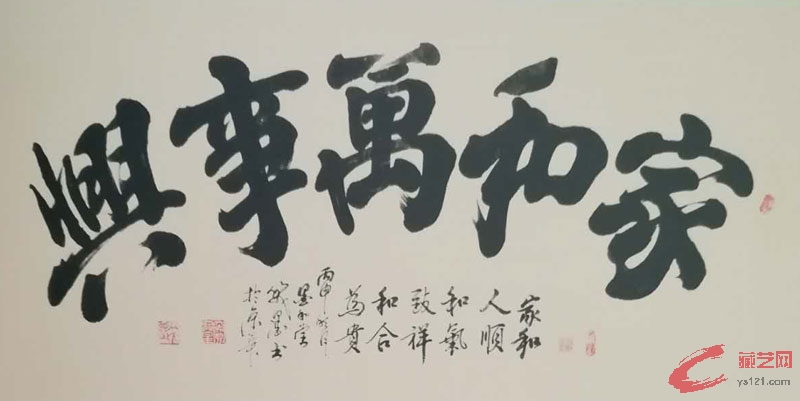 家和萬事興
家和
人順
和氣
致祥
和合
為貴
丙申
墨書
於
藏艺网
ys121.com